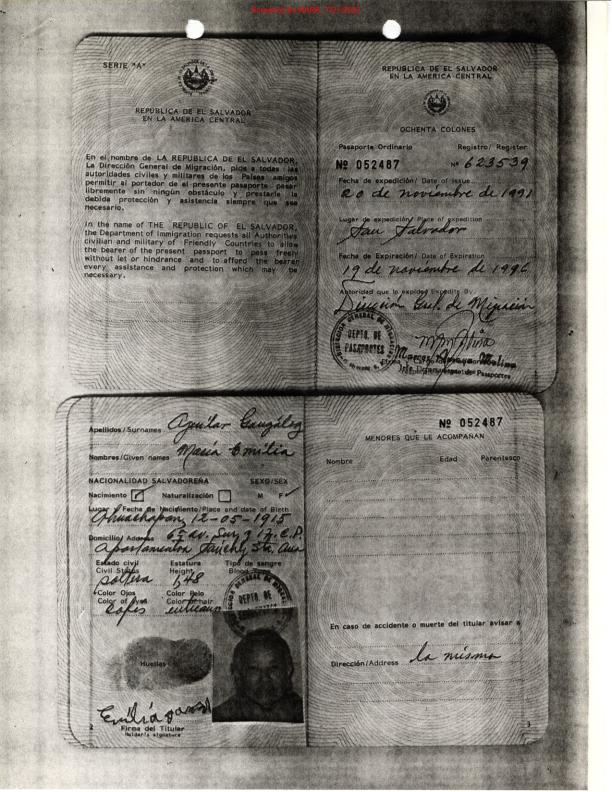 SERIE "A"
REPUBLICA DE EL SALVADOR
EN LA AMERICA CENTRAL
En el nombre de LA REPUBLICA DE EL SALVADOR,
La Dirección General de Migración, pide a todas las
autoridades civiles y militares de los Países amigos
permitir al portador de el presente pasaporte pasar
libremente sin ningún obstáculo y prestarle la
debida protección y asistencia siempre que sea
necesario.
In the name of THE REPUBLIC OF EL SALVADOR,
the Department of Immigration requests all Authorities
civilian and military of Friendly Countries to allow
the bearer of the present passport to pass freely
without let or hindrance and to afford the bearer
every assistance and protection which may be
necessary.
REPUBLICA DE EL SALVADOR
EN LA AMERICA CENTRAL
OCHENTA COLONES
Pasaporte Ordinario Registro/ Register
Nº 052487 Nº 623539
Fecha de expedición/ Date of issue
20 de noviembre de 1991
Lugar de expedición/ Place of expedition
San Salvador
Fecha de Expiración/ Date of Expiration
19 de noviembre de 1996
Autoridad que lo expide/ Expedite By
Dirección Gral. de Migración
DEPTO. DE
PASAPORTES
Molina
de Pasaportes
Apellidos/Surnames Aguilar González
Nombres/Given names María Emilia
NACIONALIDAD SALVADOREÑA SEXO/SEX
Nacimiento Naturalización M F
Lugar y Fecha de Nacimiento/Place and date of Birth
Ahuachapán, 12-05-1915
Domicilio/ Address 6ª av. Sur y 17 C.P.
Apartamentos Sta. Ana
Estado civil Estatura Tipo de sangre
Civil Status Height Blood
soltera 1,48
Color Ojos Color Pelo
Color of eyes Color of hair
cafes entrecano
DEPTO. DE
Huellas
Firma del Titular
Holder's signature
2
Nº 052487
MENORES QUE LE ACOMPAÑAN
Nombre Edad Parentesco
En caso de accidente o muerte del titular avisar a
Dirección/Address la misma
3